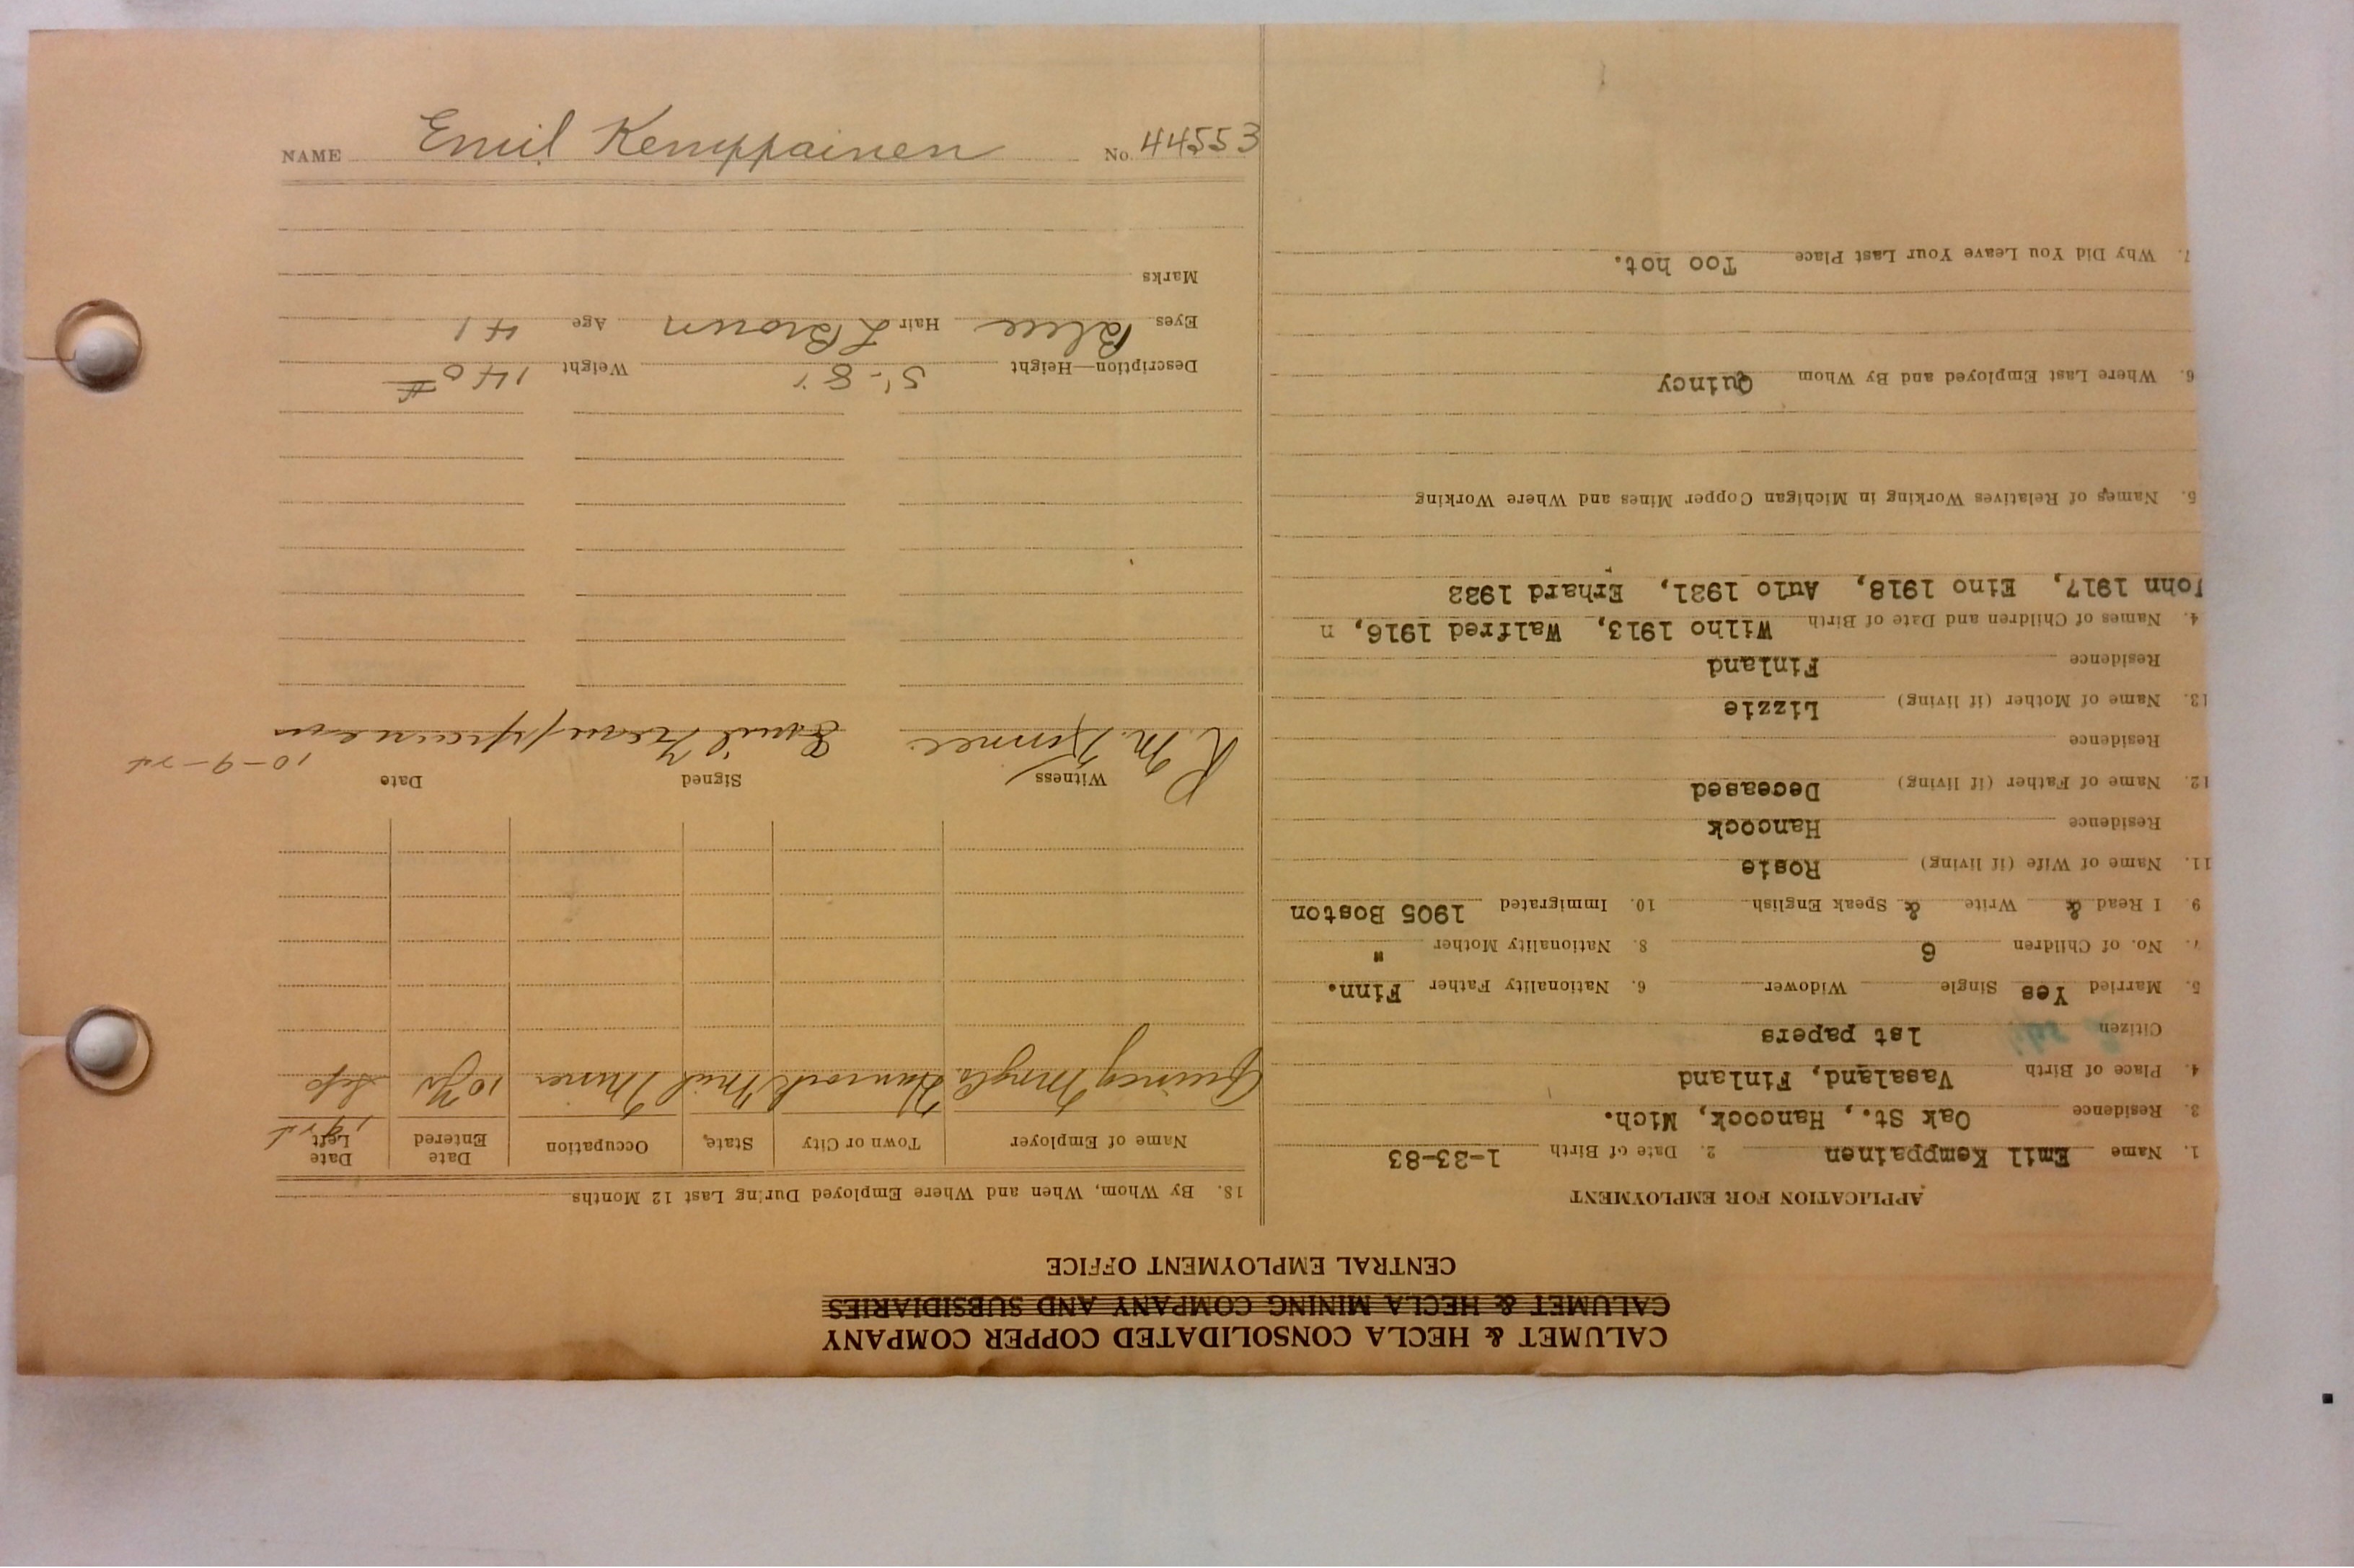 CALUMET & HECLA CONSOLIDATED COPPER COMPANY
CALUMET & HECLA MINING COMPANY AND SUBSIDIARIES
CENTRAL EMPLOYMENT OFFICE
APPLICATION FOR EMPLOYMENT
1. Name Emil Kemppainen 2. Date of Birth 1-23-83
3. Residence Oak St., Hancock, Mich.
4. Place of Birth Vasaland, Finland
Citizen 1st papers
5. Married Yes Single Widower 6. Nationality Father Finn.
7. No. of Children 6 8. Nationality Mother "
9. I Read & Write & Speak English 10. Immigrated 1905 Boston
11. Name of Wife (if living) Rosie
Residence Hancock
12. Name of Father (if living) Deceased
Residence
13. Name of Mother (if living) Lizzie
Residence Finland
4. Names of Children and Date of Birth Wilho 1913, Walfred 1916, n
John 1917, Eino 1918, Aulo 1921, Erhard 1922
5. Names of Relatives Working in Michigan Copper Mines and Where Working
6. Where Last Employed and By Whom Quincy
7. Why Did You Leave Your Last Place Too hot.
18. By Whom, When and Where Employed During Last 12 Months
Name of Employer Town or City State, Occupation Date Entered Date Left
Quincy Mng Co. Hancock Mich Miner Sep
Witness Signed Date
Emil Kemppainen 10-9-24
Description—Height 5'-8" Weight 140 #
Eyes Blue Hair L Brown Age 41
Marks
NAME Emil Kemppainen No. 44553